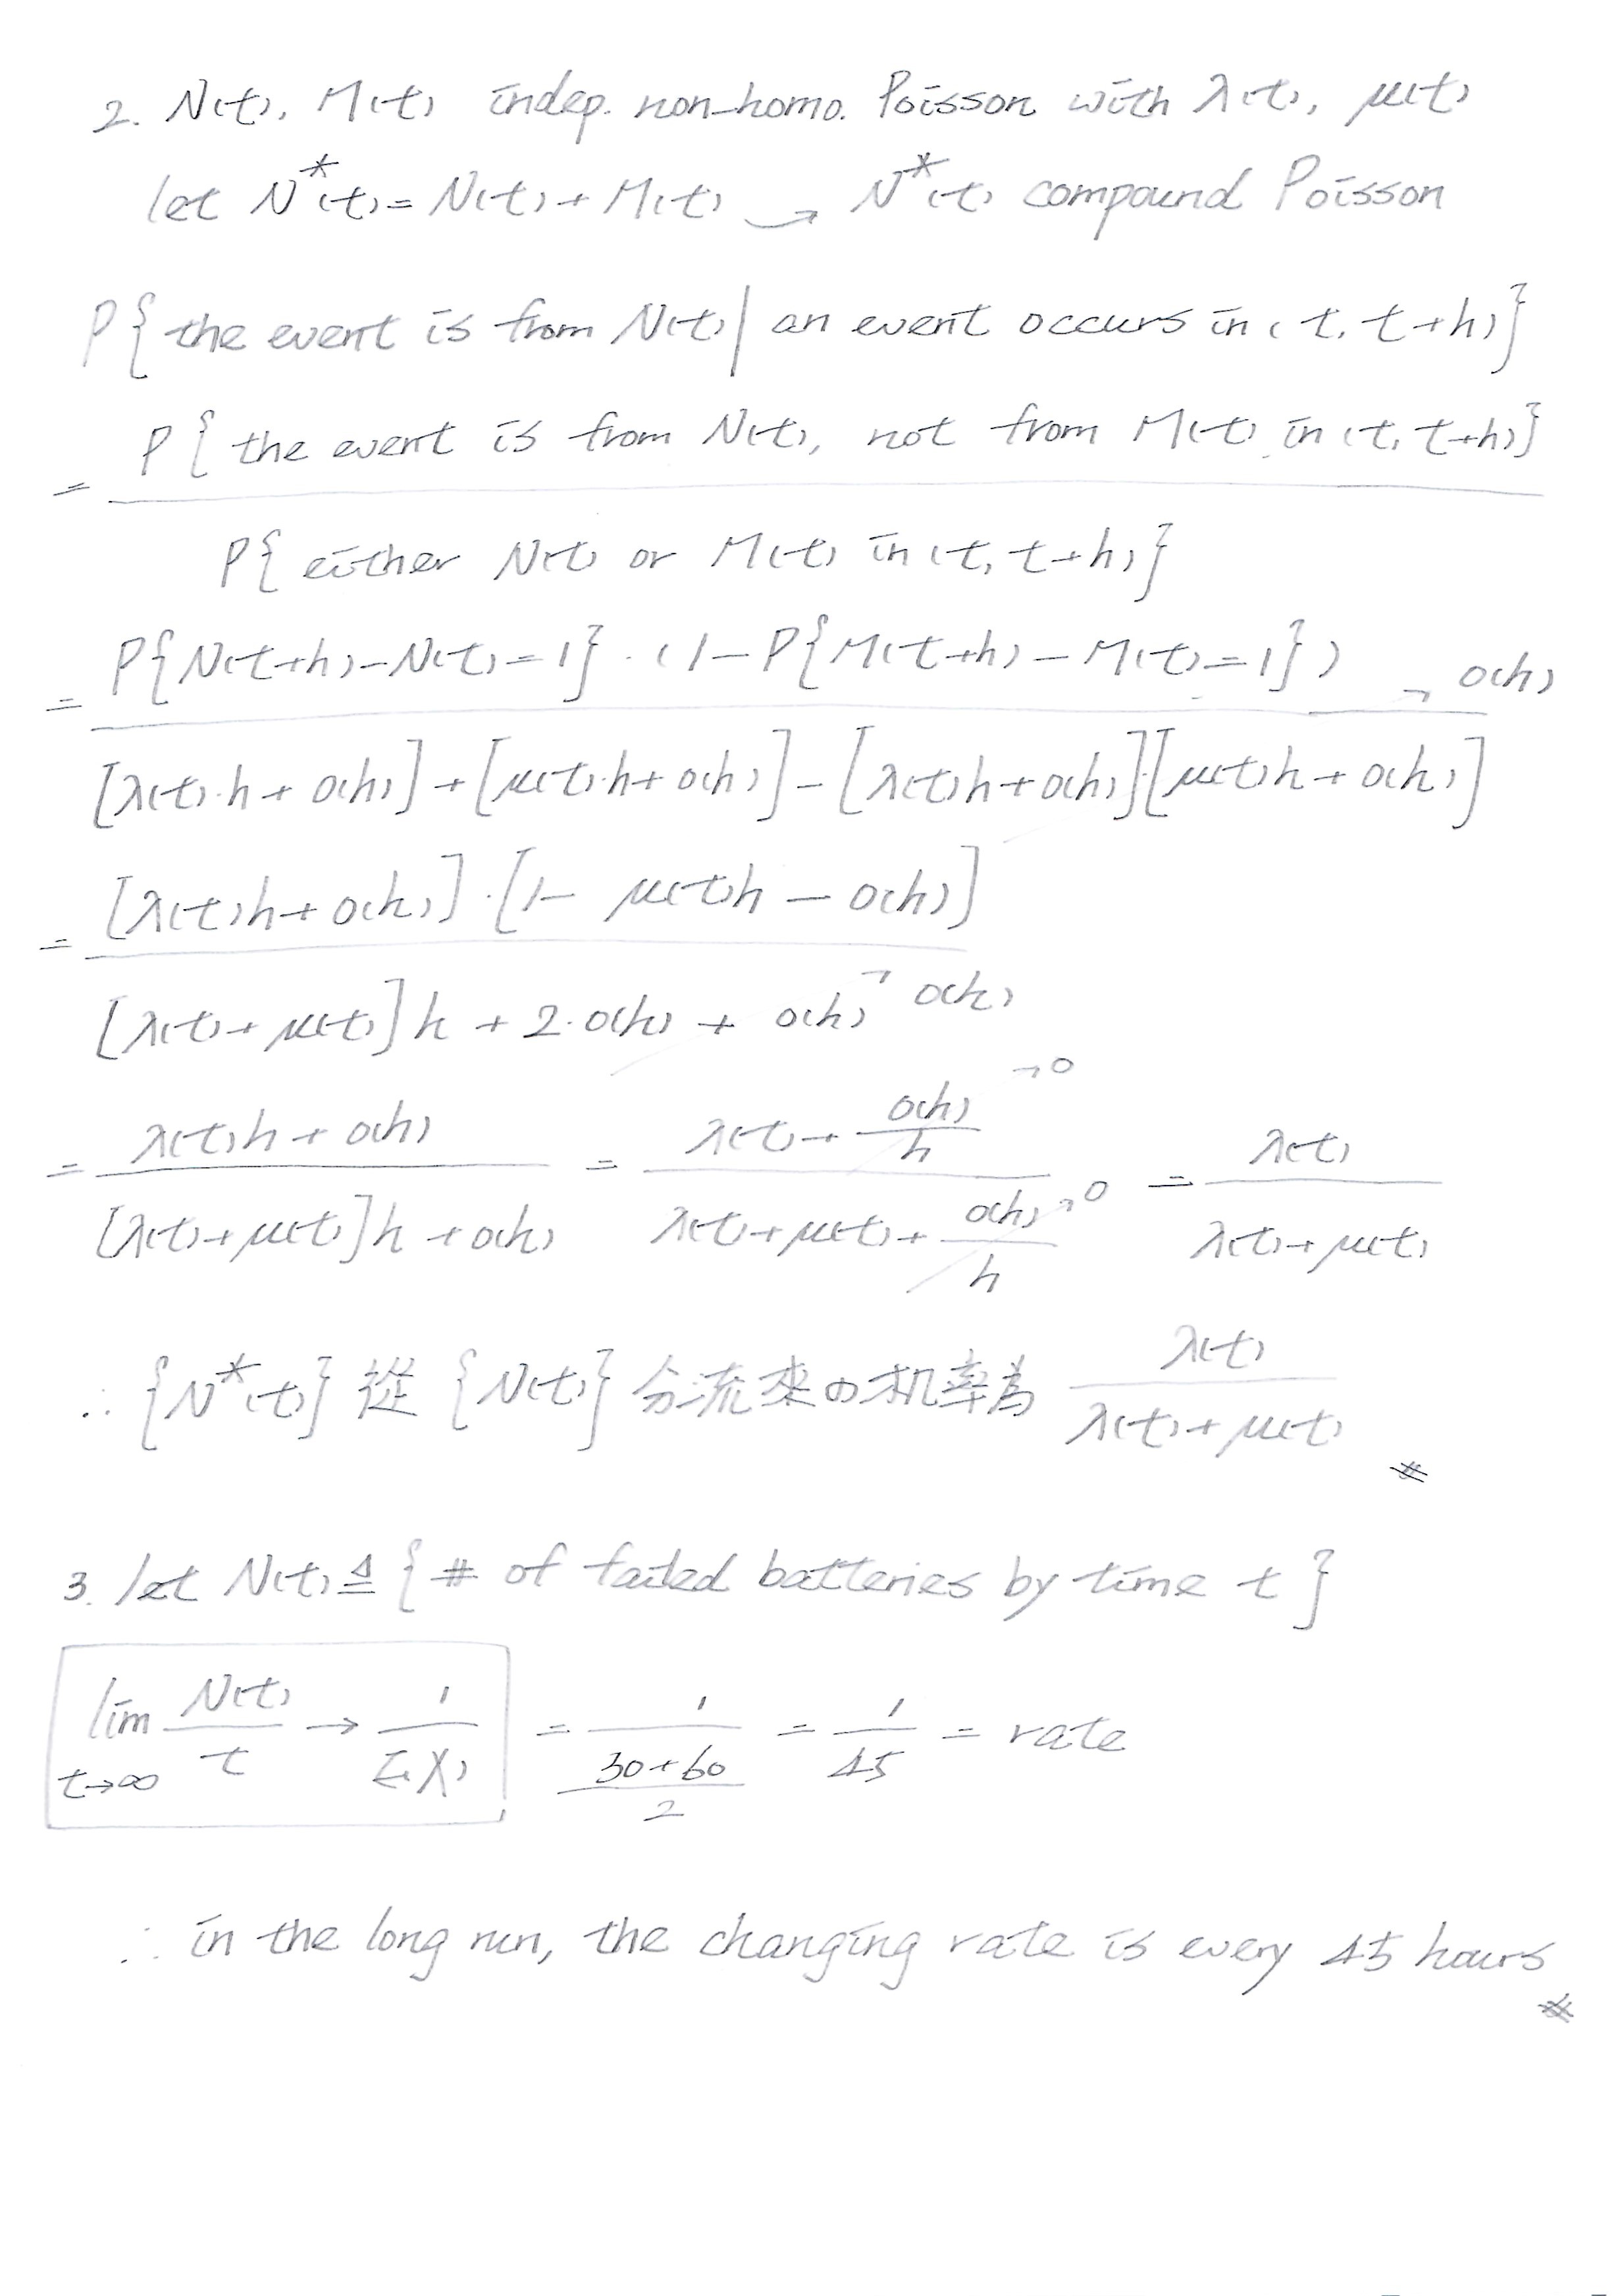 2. N(t), M(t) indep. non-homo. Poisson with λ(t), μ(t)
let N*(t) = N(t) + M(t) → N*(t) compound Poisson
P{the event is from N(t) | an event occurs in (t, t+h)}
= P{the event is from N(t), not from M(t) in (t, t+h)} / P{either N(t) or M(t) in (t, t+h)}
= P{N(t+h) - N(t) = 1} · (1 - P{M(t+h) - M(t) = 1}) / [λ(t)·h + o(h)] + [μ(t)·h + o(h)] - [λ(t)h + o(h)][μ(t)h + o(h)] → o(h)
= [λ(t)h + o(h)]·[1 - μ(t)h - o(h)] / [λ(t) + μ(t)]h + 2·o(h) + o(h) → o(h)
= λ(t)h + o(h) / [λ(t) + μ(t)]h + o(h) = λ(t) + o(h)/h →0 / λ(t) + μ(t) + o(h)/h →0 = λ(t) / λ(t) + μ(t)
∴ {N*(t)} 從 {N(t)} 分流來の机率為 λ(t) / λ(t) + μ(t) #
3. let N(t) ≜ {# of failed batteries by time t}
lim t→∞ N(t)/t → 1/E(X) = 1 / (30+60)/2 = 1/45 = rate
∴ in the long run, the changing rate is every 45 hours #